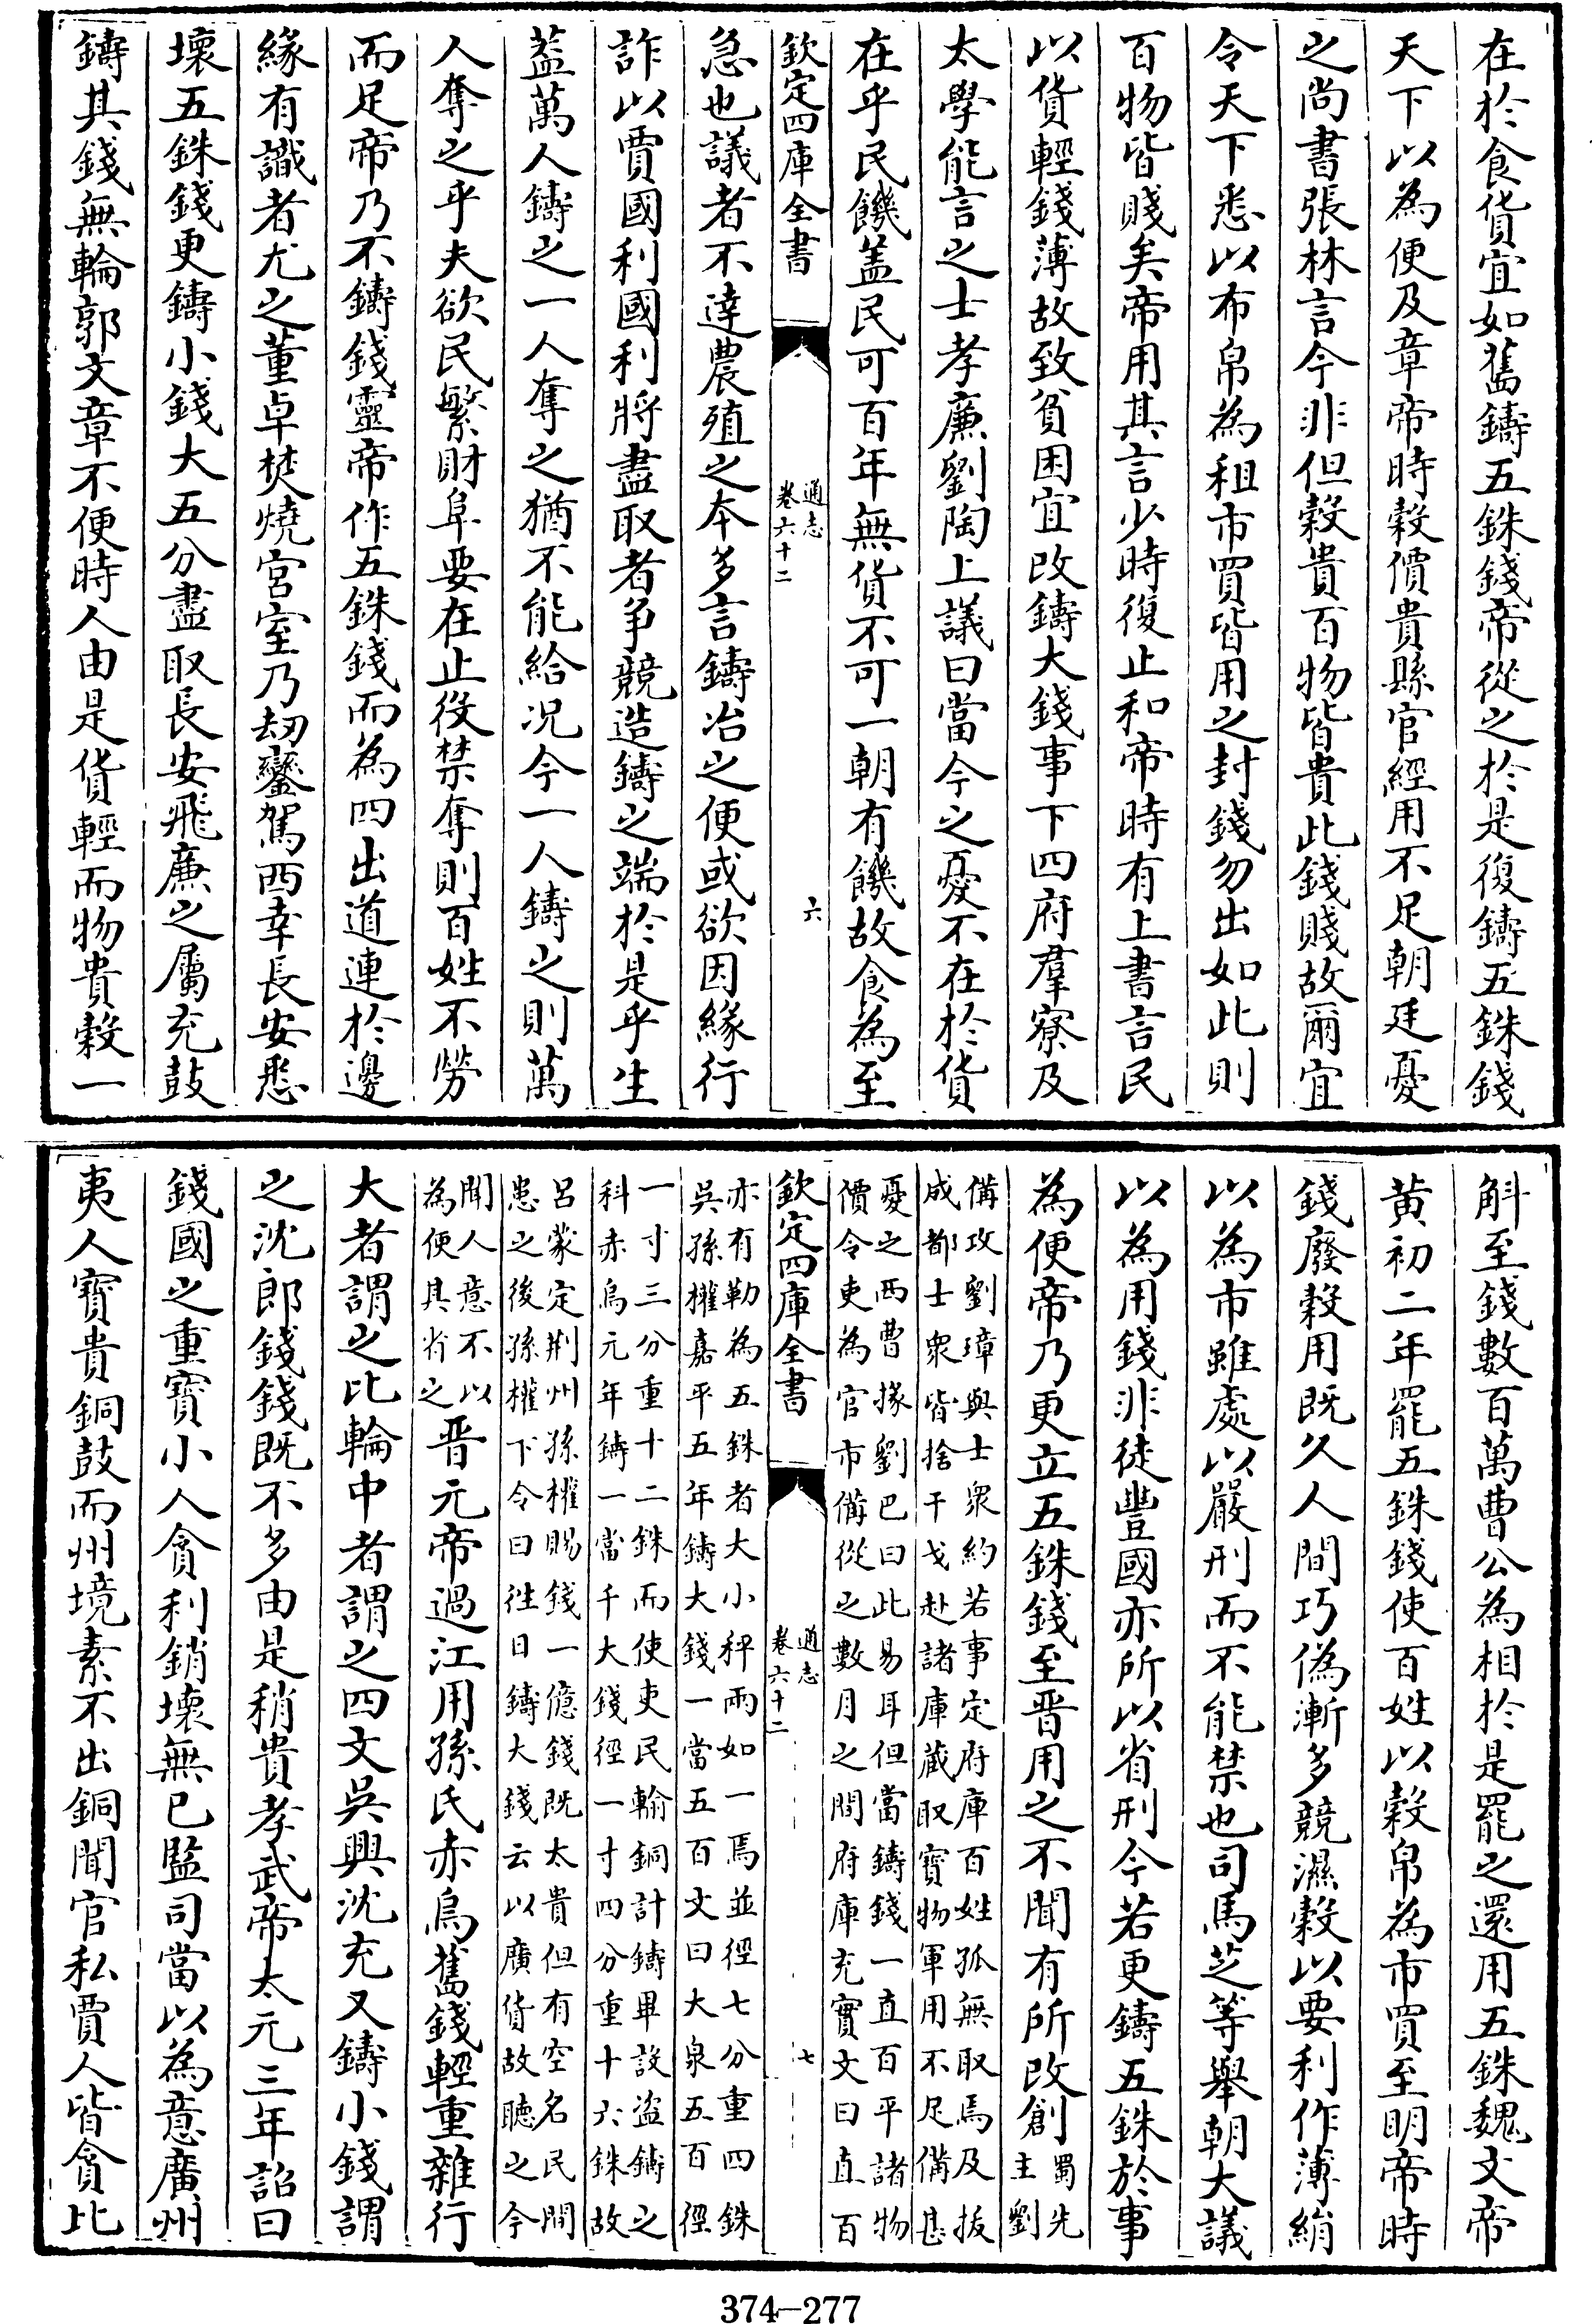 在於食貨宜如舊鑄五銖錢帝從之於是復鑄五銖錢
天下以為便及章帝時穀價貴縣官經用不足朝廷憂
之尚書張林言今非但穀貴百物皆貴此錢賤故爾宜
令天下悉以布帛為租市買皆用之封錢勿出如此則
百物皆賤矣帝用其言少時復止和帝時有上書言民
以貨輕錢薄故致貧困宜改鑄大錢事下四府羣寮及
太學能言之士孝廉劉陶上議曰當今之憂不在於貨
在乎民饑盖民可百年無貨不可一朝有饑故食為至
欽定四庫全書
通志
卷六十二
六
急也議者不達農殖之本多言鑄冶之便或欲因緣行
詐以賈國利國利將盡取者爭競造鑄之端於是乎生
葢萬人鑄之一人奪之猶不能給况今一人鑄之則萬
人奪之乎夫欲民繁財阜要在止役禁奪則百姓不勞
而足帝乃不鑄錢靈帝作五銖錢而為四出道連於邊
緣有識者尤之董卓焚燒宮室乃刼鑾駕西幸長安悉
壞五銖錢更鑄小錢大五分盡取長安飛廉之屬充鼓
鑄其錢無輪郭文章不便時人由是貨輕而物貴穀一
斛至錢數百萬曹公為相於是罷之還用五銖魏文帝
黄初二年罷五銖錢使百姓以穀帛為市買至明帝時
錢廢穀用既久人間巧偽漸多競濕穀以要利作薄絹
以為市雖處以嚴刑而不能禁也司馬芝等舉朝大議
以為用錢非徒豐國亦所以省刑今若更鑄五銖於事
為便帝乃更立五銖錢至晋用之不聞有所改創蜀先
主劉
備攻劉璋與士衆約若事定府庫百姓孤無取焉及拔
成都士衆皆捨干戈赴諸庫藏取寳物軍用不足備甚
憂之西曹掾劉巴曰此易耳但當鑄錢一直百平諸物
價令吏為官市備從之數月之間府庫充實文曰直百
欽定四庫全書
通志
卷六十二
七
亦有勒為五銖者大小秤兩如一焉並徑七分重四銖
吳孫權嘉平五年鑄大錢一當五百文曰大泉五百徑
一寸三分重十二銖而使吏民輸銅計鑄畢設盗鑄之
科赤烏元年鑄一當千大錢徑一寸四分重十六銖故
呂蒙定荆州孫權賜錢一億錢既太貴但有空名民間
患之後孫權下令曰徃日鑄大錢云以廣貨故聽之今
聞人意不以
為便其省之晋元帝過江用孫氏赤烏舊錢輕重雜行
大者謂之比輪中者謂之四文吳興沈充又鑄小錢謂
之沈郎錢錢既不多由是稍貴孝武帝太元三年詔曰
錢國之重寳小人貪利銷壞無已監司當以為意廣州
夷人寳貴銅鼓而州境素不出銅聞官私賈人皆貪比
374-277